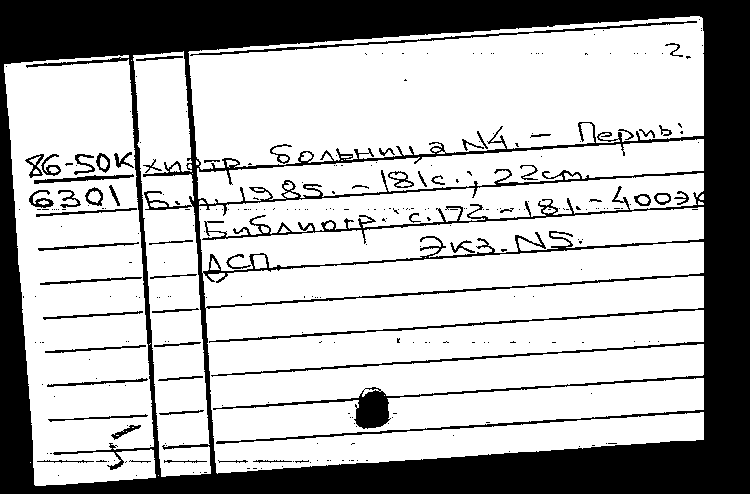 2.
86-50К хиатр. больница N4. - Пермь:
6301 Б.и., 1985. - 181с.; 22см.
Библиогр.: с.172-181. - 400эк
ДСП. Экз. N5.
5